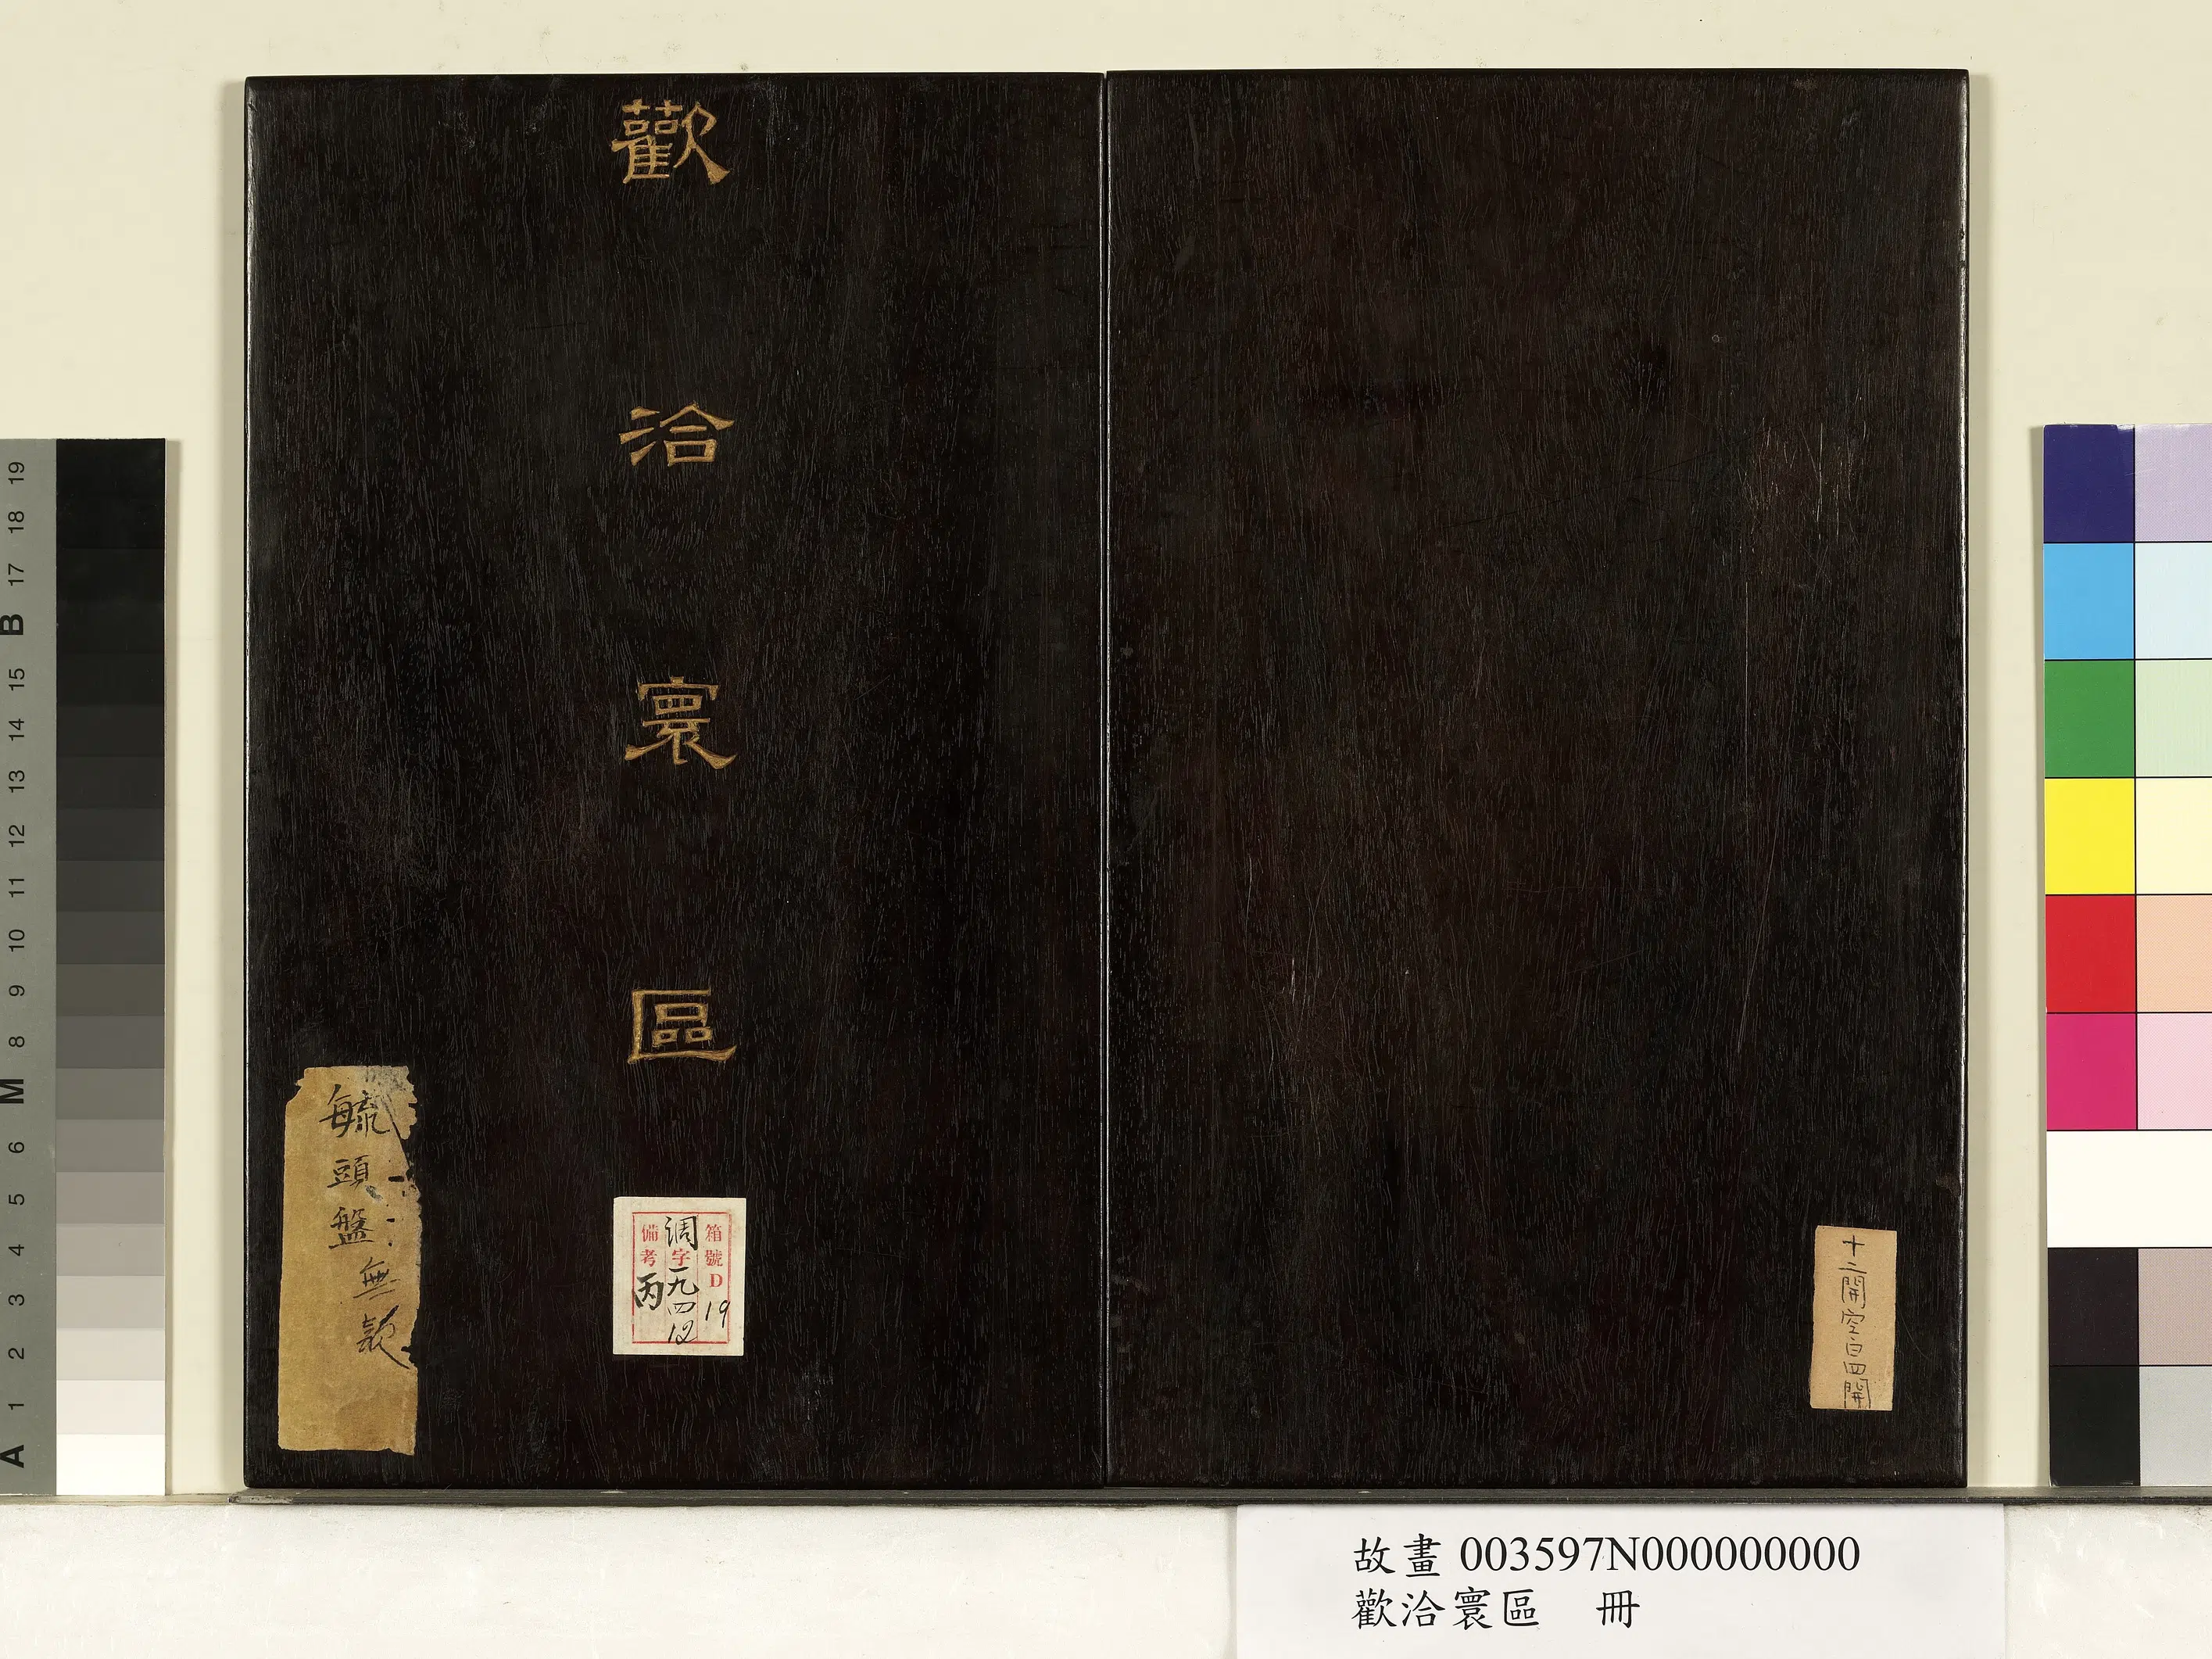 歡洽寰區
毓頭盤無款
箱號D19
調字一九四12
備考丙
十二開空白四開
故畫 003597N000000000
歡洽寰區 冊
19
18
17
B
15
14
13
12
11
10
9
8
M
6
5
4
3
2
1
A